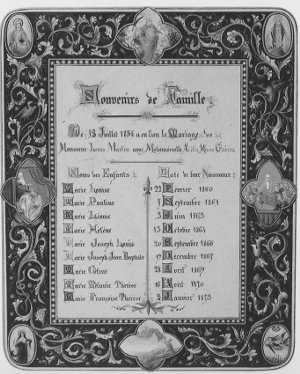 Souvenirs de Famille
Le 13 Juillet 1858 a eu lieu le Mariage de
Monsieur Louis Martin avec Mademoiselle Guérin
Noms des Enfants Date de leur Naissance
Marie Louise 22 Février 1860
Marie Pauline 7 Septembre 1861
Marie Léonie 3 Juin 1863
Marie Hélène 13 Octobre 1864
Marie Joseph Louis 20 Septembre 1866
Marie Joseph Jean Baptiste 19 Décembre 1867
Marie Céline 28 Avril 1869
Marie Mélanie Thérèse 16 Août 1870
Marie Françoise Thérèse 2 Janvier 1873